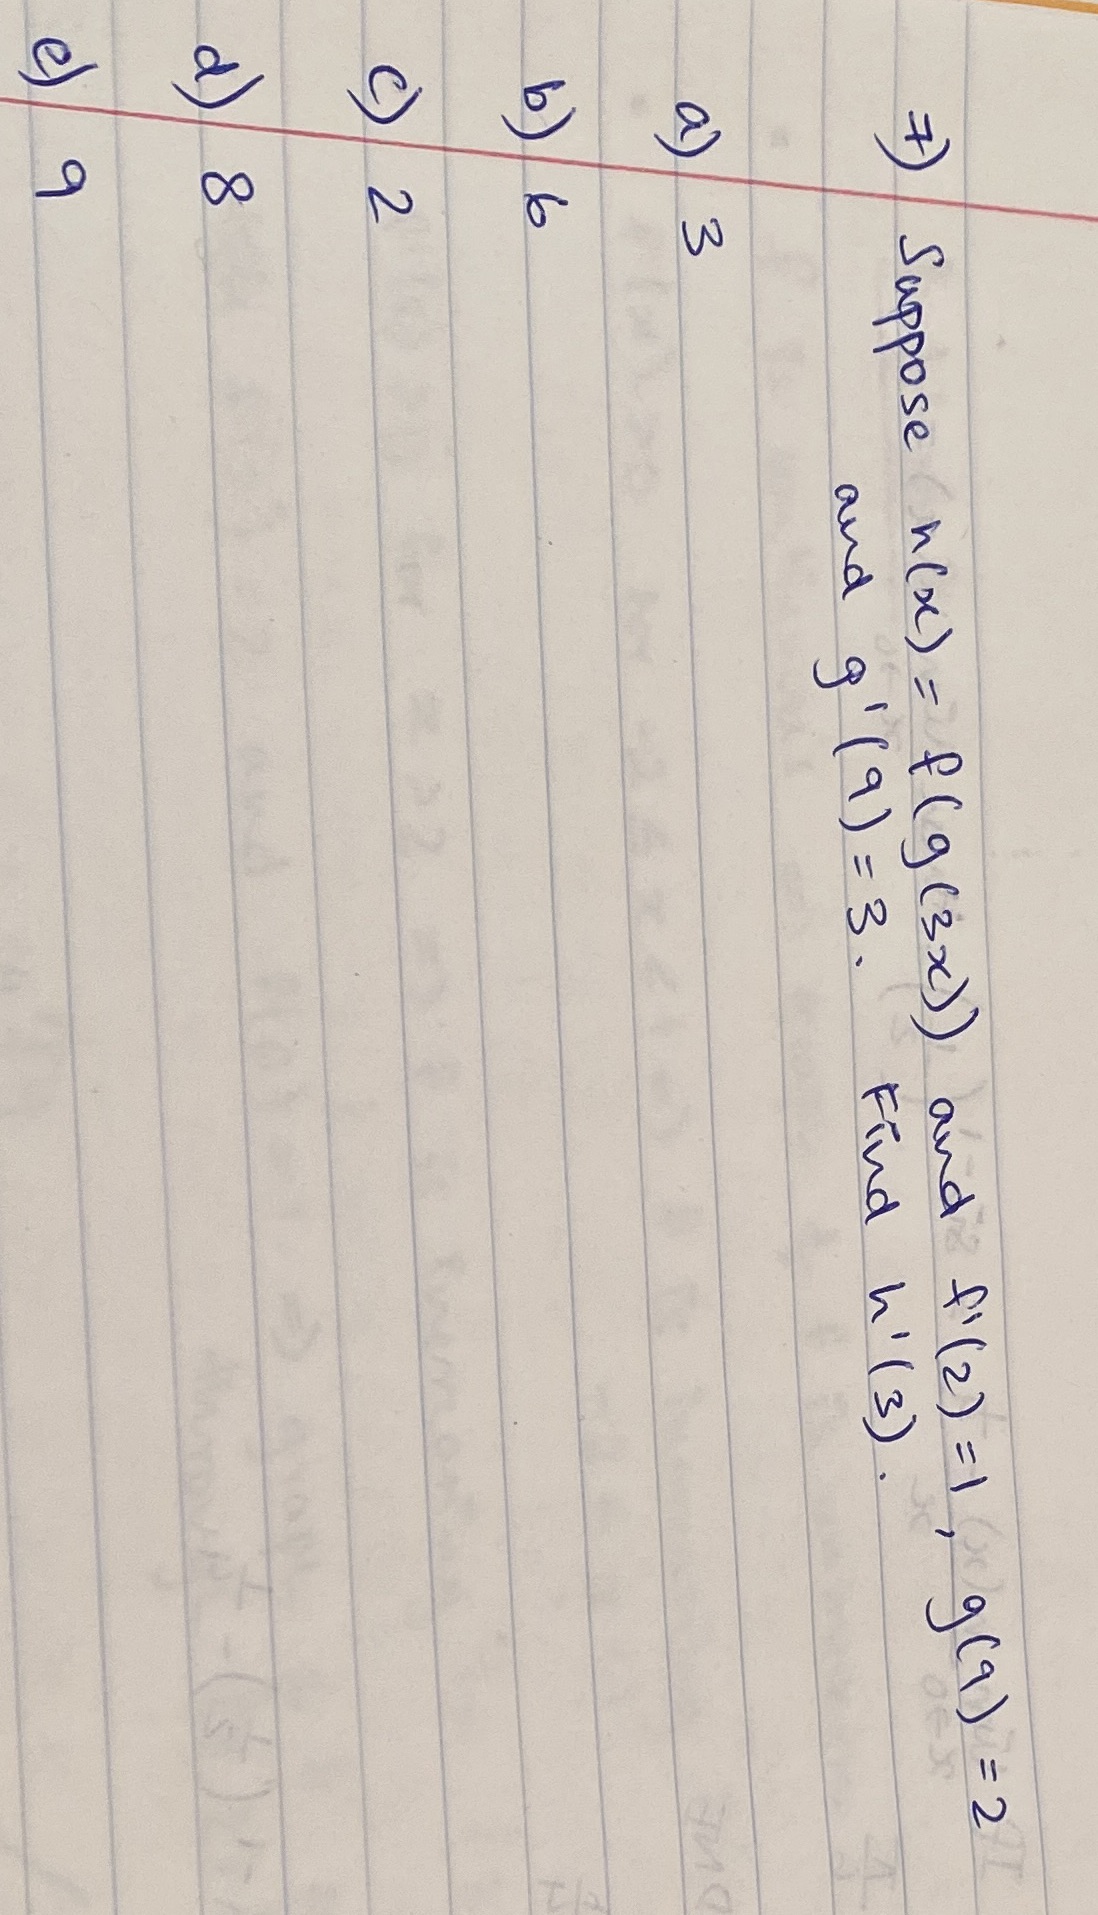 7) Suppose h(x) = f(g(3x)) and f'(2)=1, g(9)=2
and g'(9)=3. Find h'(3).
a) 3
b) 6
c) 2
d) 8
e) 9